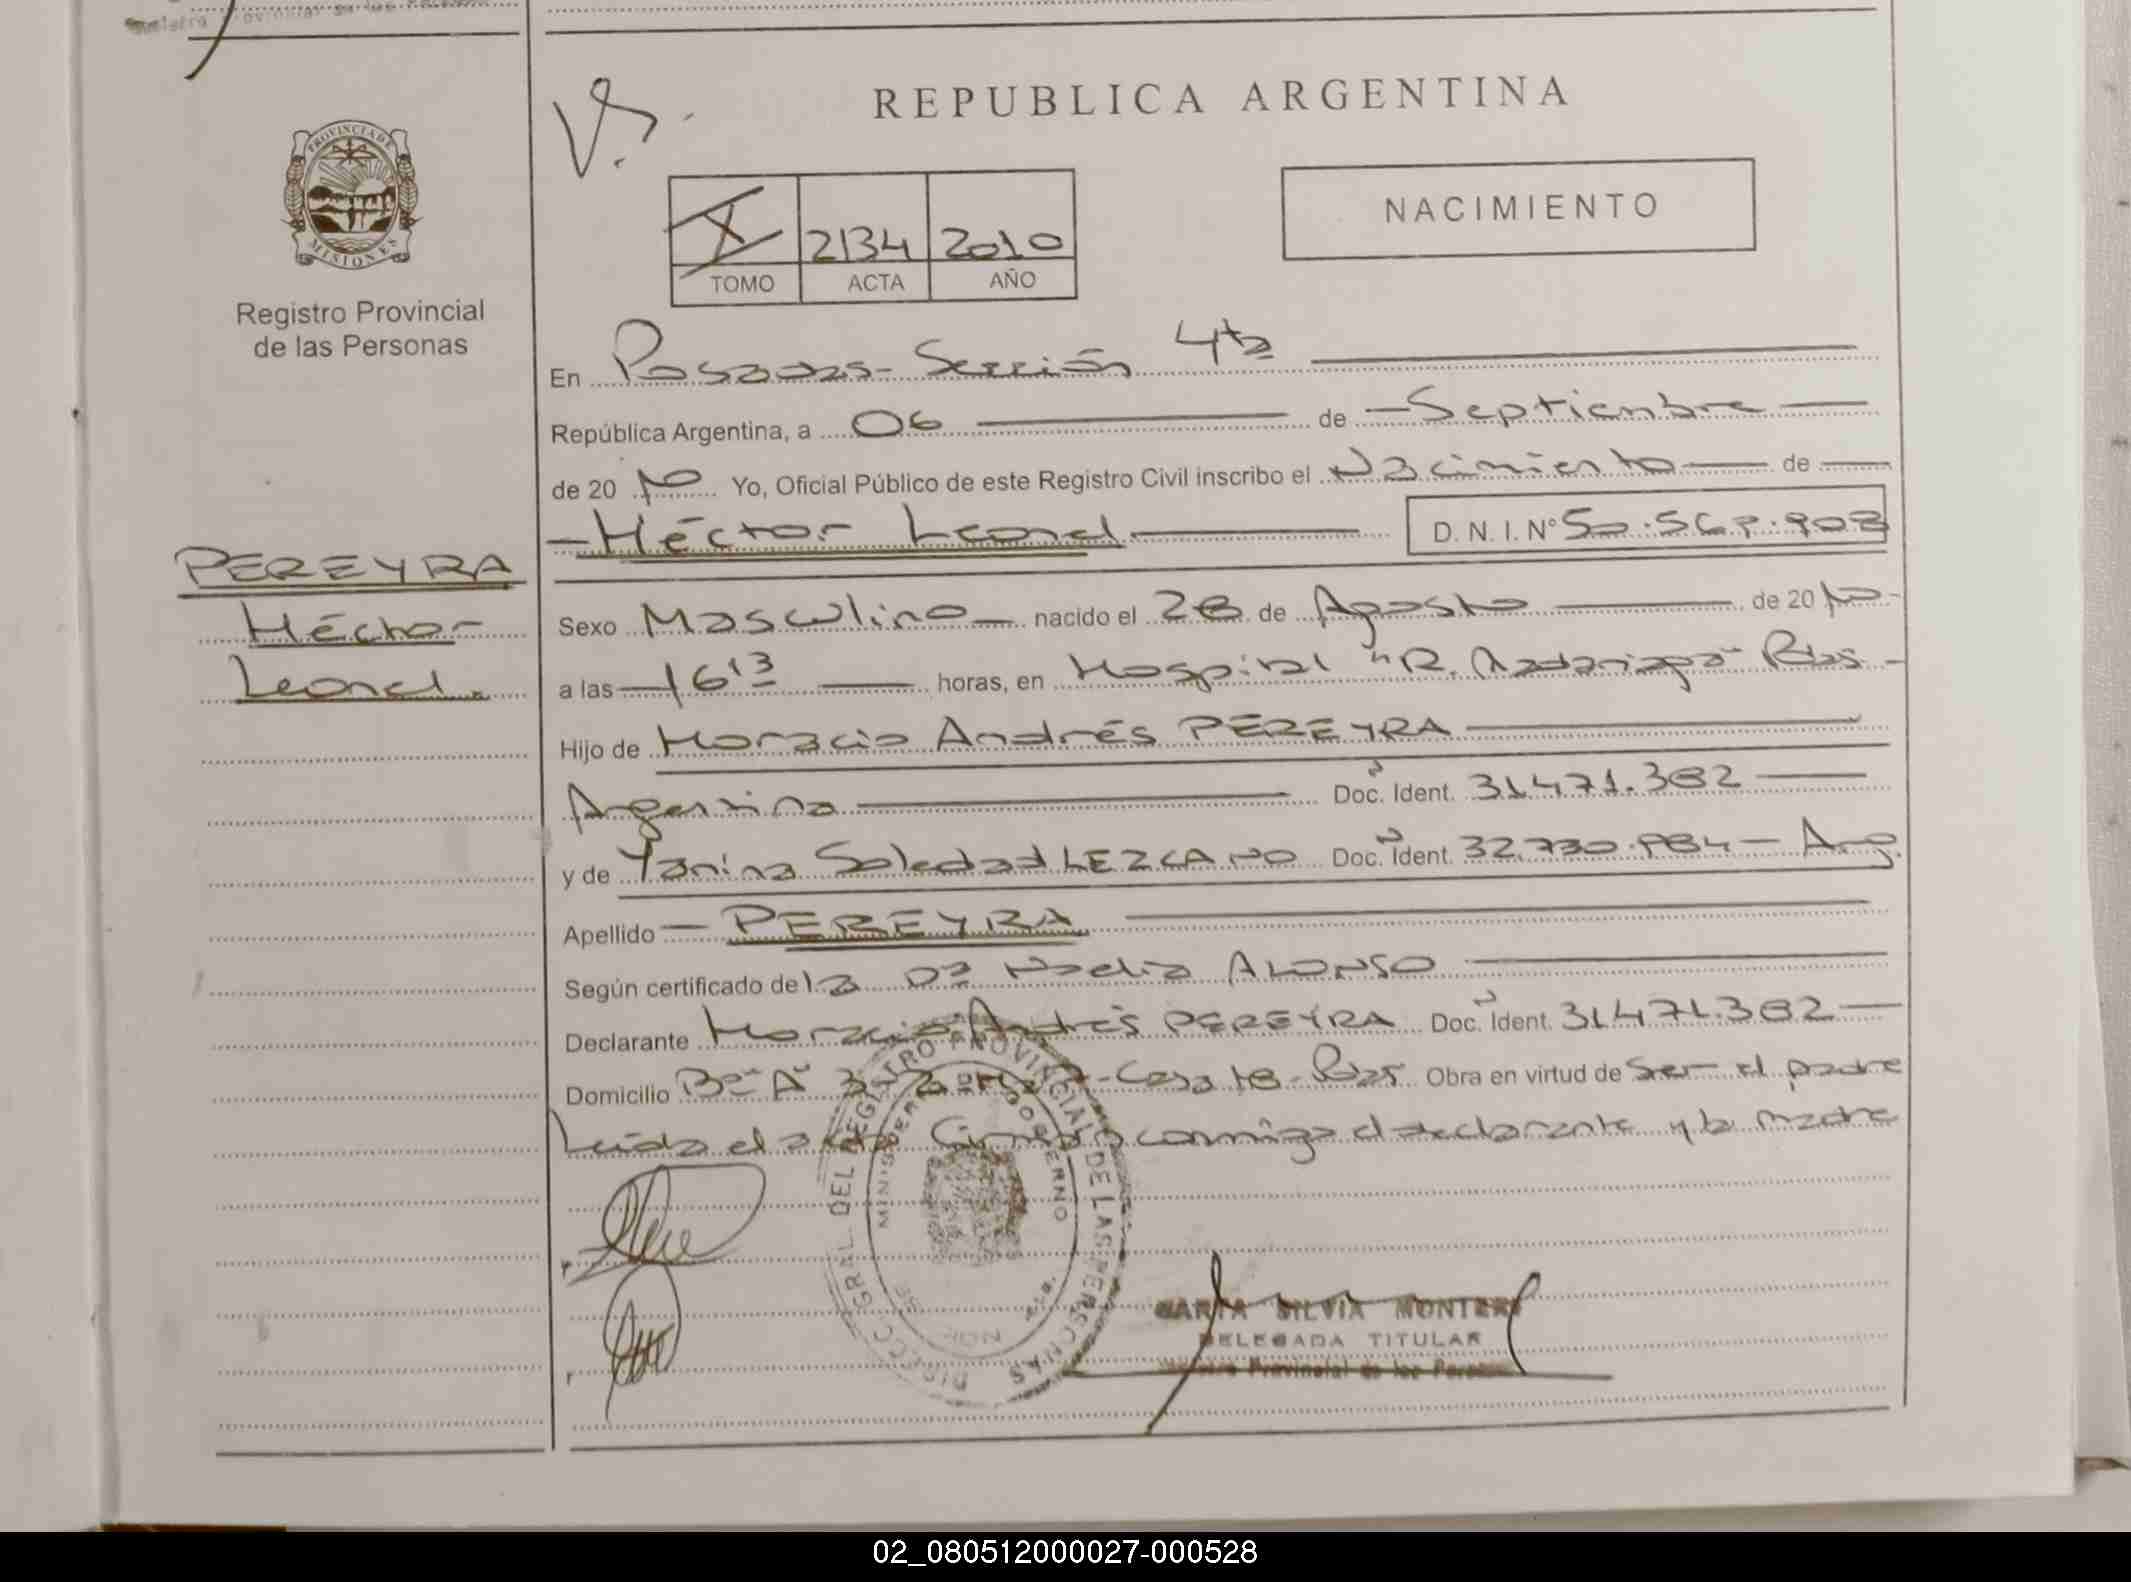 REPUBLICA ARGENTINA
PROVINCIA DE
MISIONES
Registro Provincial
de las Personas
X 2134 2010
TOMO ACTA AÑO
NACIMIENTO
En Posadas - Sección 4ta
República Argentina, a 06 de Septiembre
de 20 10 Yo, Oficial Público de este Registro Civil inscribo el Nacimiento de
Héctor Leonel D.N.I. Nº
PEREYRA
Héctor
Leonel.
Sexo Masculino nacido el 28 de Agosto de 20 10
a las 16 13 horas, en Hospital "R. Madariaga" Pdas
Hijo de Horacio Andrés PEREYRA
Argentina Doc. Ident. 31.471.382
y de Yanina Soledad LEZCANO Doc. Ident. Arg.
Apellido PEREYRA
Según certificado de la Dra Nadia ALONSO
Declarante Horacio Andrés PEREYRA Doc. Ident. 31.471.382
Domicilio Bº "A" Casa 18 - Pdas Obra en virtud de ser el padre
Leída el acta firman conmigo el declarante y la madre
DIRECC. GRAL. DEL REGISTRO PROVINCIAL DE LAS PERSONAS
MINISTERIO DE GOBIERNO
MARTA SILVIA MONTERO
DELEGADA TITULAR
Registro Provincial de las Personas
02_080512000027-000528